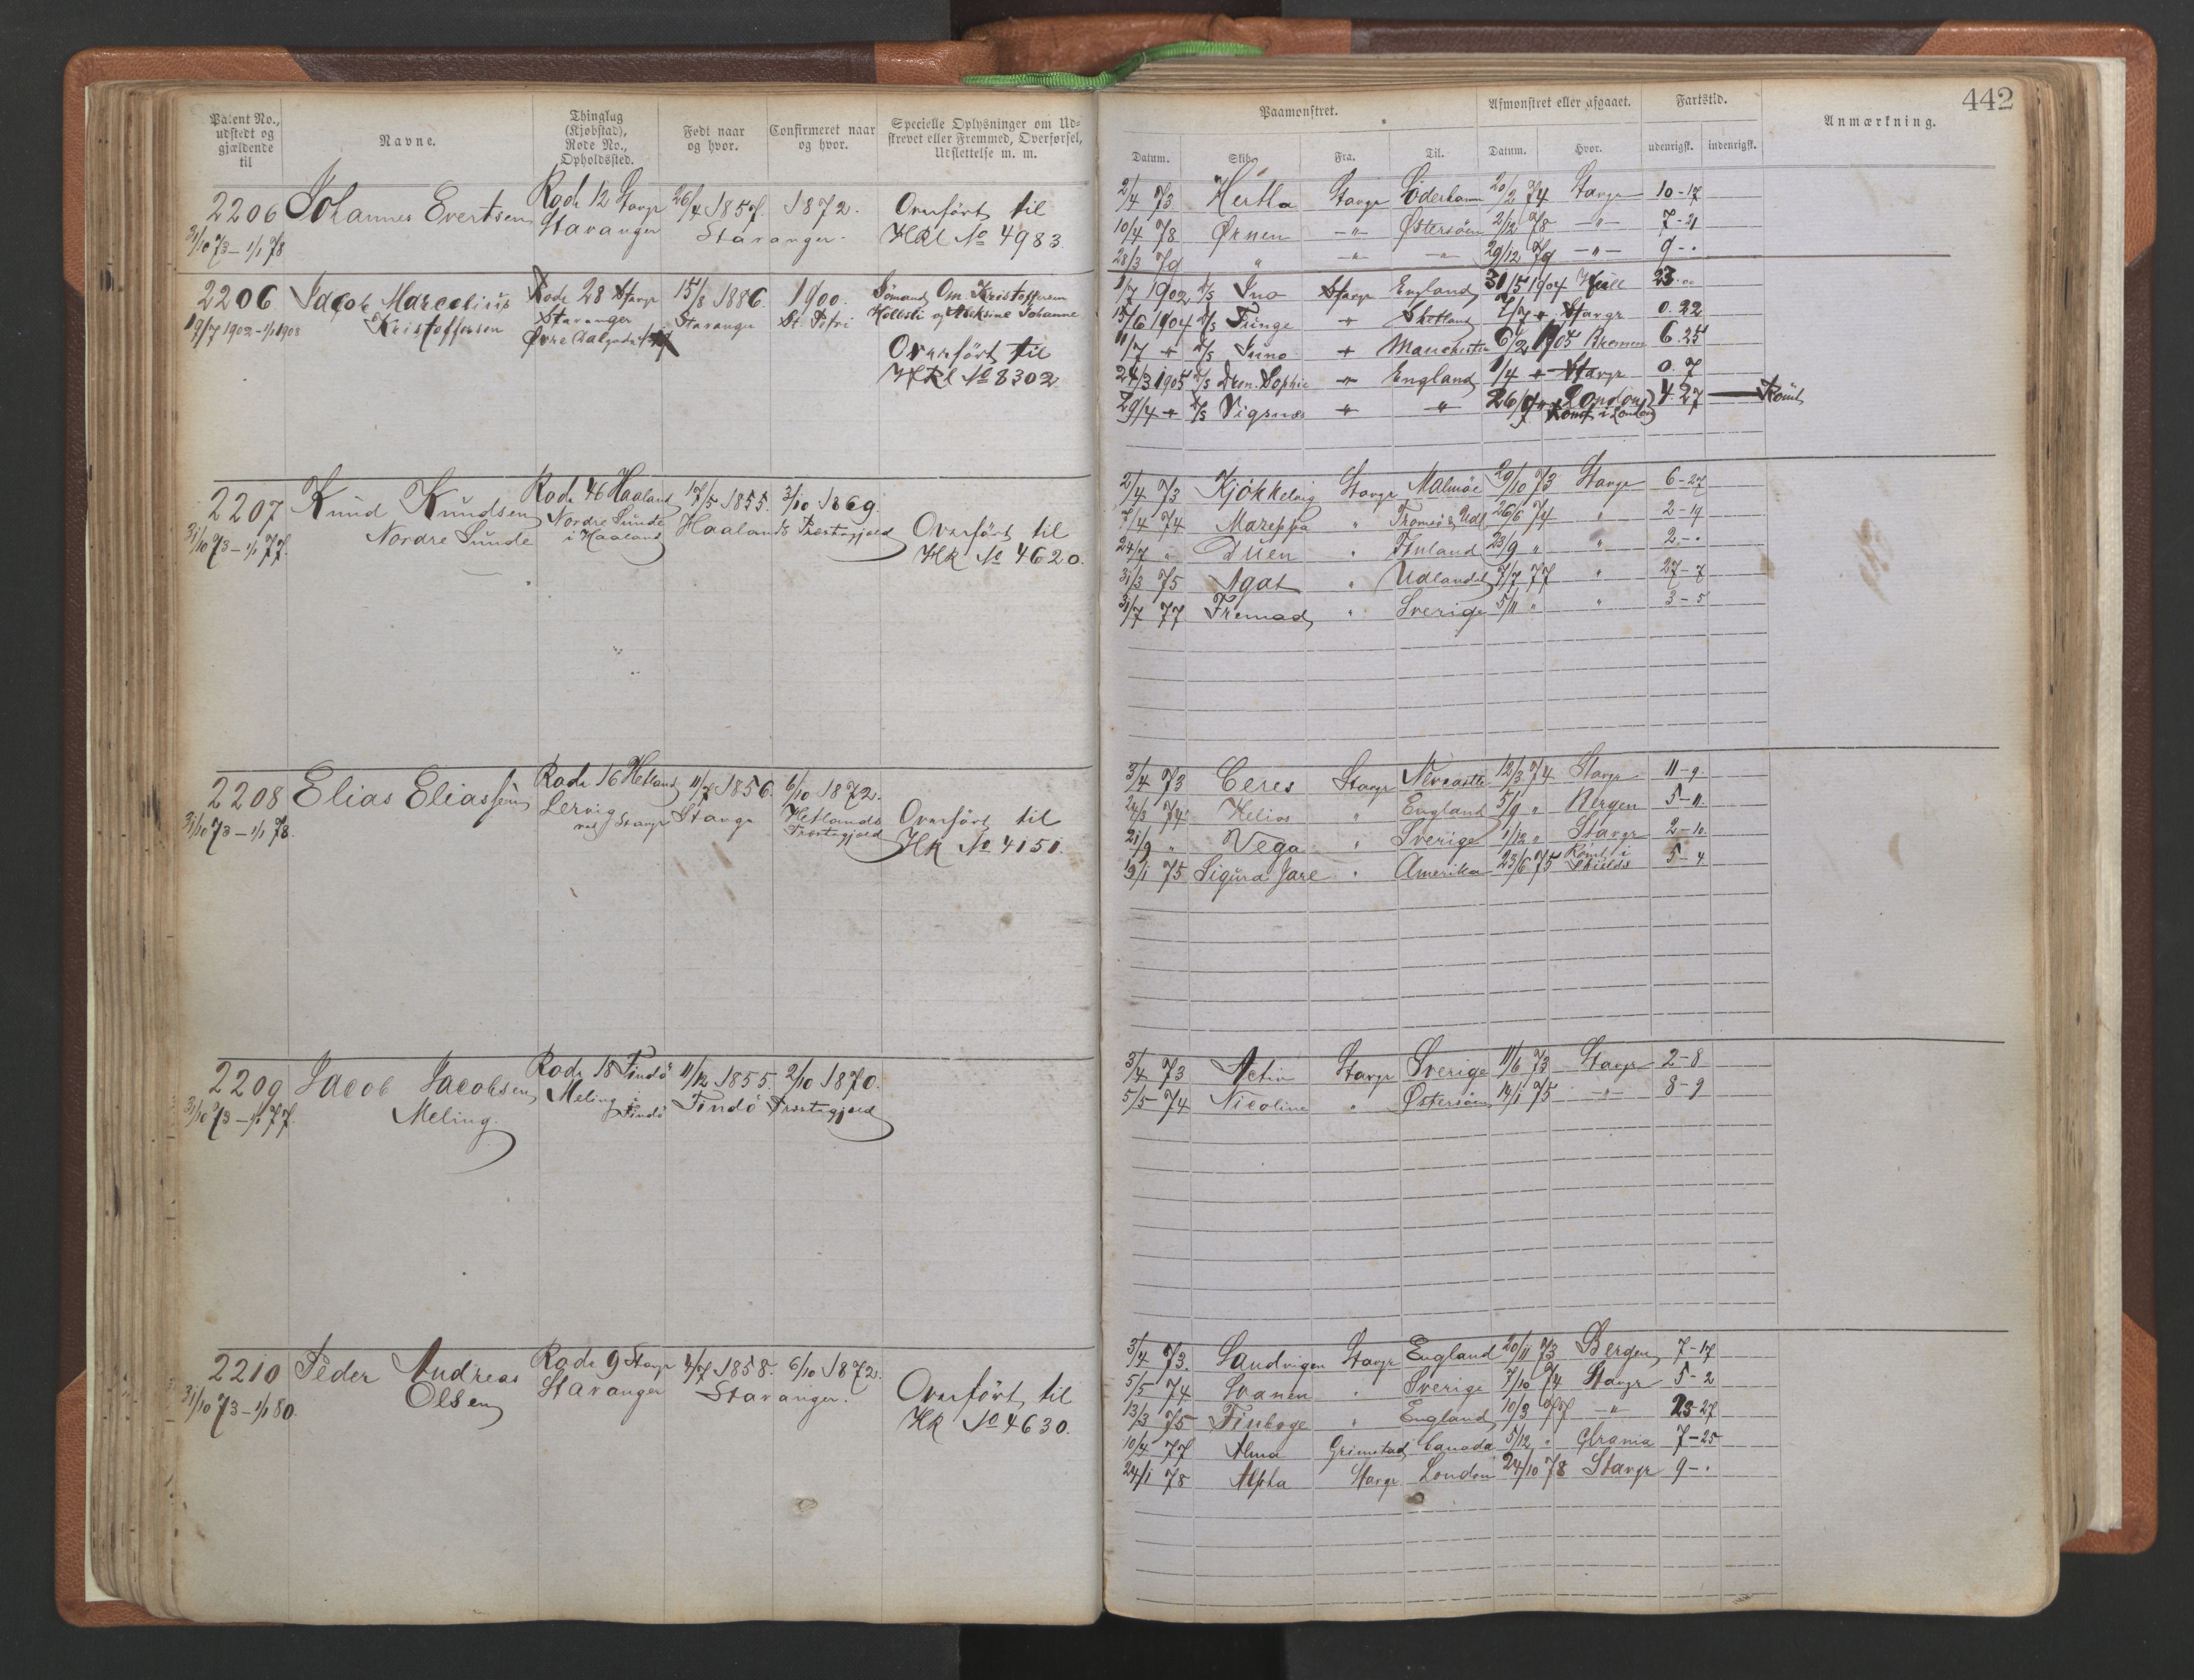 442
Patent No., udstedt og gjældende til
Navne.
Thinglag (Kjøbstad), Rode No., Opholdssted.
Født naar og hvor.
Confirmeret naar og hvor.
Specielle Oplysninger om Udskrevet eller Fremmed, Overførsel, Udslettelse m. m.
Paamønstret.
Afmønstret eller afgaaet.
Fartstid.
Anmærkning.
Datum. Skib. Fra. Til. Datum. Hvor. udenrigsk. indenrigsk.
2206 Johannes Evertsen Rode 12 Stavgr 26/4 1857. 1872. Overført til
31/10 73 – 1/1 78 Stavanger Stavanger. HKl No 4983.
2/4 73 Hertha Stavgr Söderhamn 20/2 74 Stavgr 10-17
10/4 78 Ørnen –"– Østersöen 2/12 78 –"– 7-21
28/3 79 " –"– –"– 29/12 79 –"– 9-.
2206 Jacob Marcelius Rode 28 Stavgr 15/8 1886. 1900. Sömand Om. Kristoffersen
19/7 1902 – 1/1 1908 Kristoffersen Stavanger Stavanger St. Petri Johanne
Øvre
Overført til
HKl No 8302
1/7 1902 D/S Juno Stavgr England 31/5 1904 Hull 23..
15/6 1904 D/S Tunge + Shetland 7/7 + Stavgr 0.22
11/7 + D/S Juno + Manchester 6/2 1905 Bremen 6.25
24/3 1905 D/S Dron. Sophie + England 1/4 + Stavgr 0.7
29/4 + D/S Vigsnæs + " 26/9 London 4 27 – Römt
Römt i London
2207 Knud Knudsen Rode 46 Haaland 17/5 1855. 3/10 1869.
31/10 73 – 1/1 77. Nordre Sunde Nordre Sunde i Haaland Haalands Præstegjæld Overført til
HK No 4620.
2/4 73 Kjökkelvig Stavgr Malmöe 29/10 73 Stavgr 6-27
7/4 74 Mareppa " Tromsö & Udl. 26/6 74 " 2-19
24/7 " Duen " Finland 23/9 " " 2-.
31/3 75 Agat " Udlandet 7/7 77 " 27-7
31/7 77 Fremad " Sverige 5/11 " " 3-5
2208 Elias Eliassen Rode 16 Hetland 11/7 1856. 6/10 1872.
31/10 73 – 1/1 78. Lervig ved Stavgr Stavgr Hetlands Præstegjæld Overført til
HK No 4151.
3/4 73 Ceres Stavgr Newcastle 12/3 74 Stavgr 11-9.
24/3 74 Helios " England 5/9 " Bergen 5-11.
21/9 " Vega " Sverige 1/12 " Stavgr 2-10.
19/1 75 Sigurd Jarl " Amerika 23/6 75 Römt i Shields 5-4
2209 Jacob Jacobsen Rode 18 Findö 11/12 1855. 2/10 1870.
31/10 73 – 1/1 77. Meling. Meling i Findö Findö Præstegjæld
3/4 73 Activ Stavgr Sverige 11/6 73 Stavgr 2-8
5/5 74 Nicoline " Østersöen 14/1 75 –"– 8-9
2210 Peder Andreas Rode 9 Stavgr 4/7 1858. 6/10 1872.
31/10 73 – 1/1 80. Olsen Stavanger Stavanger. Overført til
HK No 4630.
3/4 73. Sandvigen Stavgr England 20/11 73 Bergen 7-17
5/5 74 Svanen " Sverige 7/10 74 Stavgr 5-2
13/3 75 Finboge " England 10/3 77 –"– 23-27
10/4 77 Alma Grimstad Canada 5/12 " 7-25
24/1 78 Alpha Stavgr London 24/10 78 Stavgr 9-.